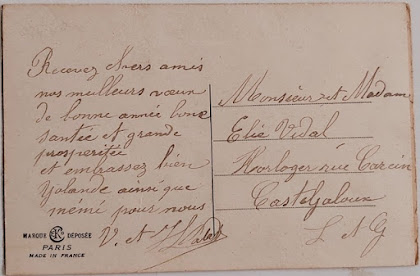 Recevez chers amis
nos meilleurs vœux
de bonne année bone
santée et grande
prosperitée
et embrassez bien
Yolande ainsi que
mémé pour nous
V. et
Monsieur et Madam
Elie Vidal
Horloger rue Carcin
Casteljaloux
L et G
MARQUE DÉPOSÉE
PARIS
MADE IN FRANCE